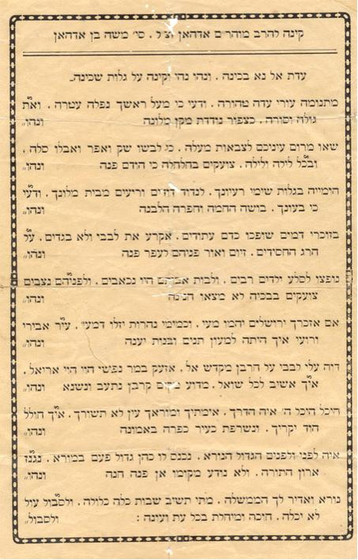 קינה להרב מוהר״ם אדהאן זצ״ל . סי׳ משה בן אדהאן
עדת אל נא בכינה . ונהו נהי וקינה על גלות שכינה.
מתנומה עורי עדה טהורה . ודעי כי מעל ראשך נפלה עטרה . ואת
גולה וסורה . כצפור נודדת מקן מלונה ונהו׳
שאו מרום עיניכם לצבאות מעלה . כי לבשו שק ואפר ואבלו סלה ,
ובכל לילה ולילה . ציעקים בחלחלה כי הודם פנה ונהו׳
הומייה בגלות שימי רעיונך . לנדוד דודים וריעים מבית מלונך . ודעי
כי בעונך . בושה החמה וחפרה הלבנה ונהו׳
בזוכרי דמים שופכו כדם עתודים . אקרע את לבבי ולא בגדים . על
הרג החסידים . זיום ואור פניהם לעפר פנה ונהו׳
נופצו לסלע ילדים רבים . ולבית אביהם היו נכאבים . ולפניהם נצבים
צועקים בבכיה לא מצאו ונהו׳
אם אזכרך ירושלים יהמו מעי . וכמימי נהרות יזלו דמעי . עיר אבירי
ורועי איך היתה למעין תנים ובנות יענה ונהו׳
דוה עלי לבבי על חרבן מקדש אל . אזעק במר נפשי הוי הוי אריאל .
איך אשוב לכל שואל . מדוע מקום קרבן נתעב ונשנא ונהו׳
היכל היכל ה׳ איה הדרך . אימתיך ומוראך עין לא תשורך . איך חולל
הוד יקריך . ונשרפת כעיר כפרה באמונה ונהו׳
איה לפני ולפנים הגדול הנורא . נכנס לו כהן גדול פעם במורא . נגנז
ארון התורה . ולא נודע מקומו אן פנה הנה ונהו׳
נורא ואדיר לך הממשלה . מתי תשיב שבות כלה כלולה . ולסבול עול
לא יכלה . חוכה ומיחלת בכל עת ועונה : ולסבול׳